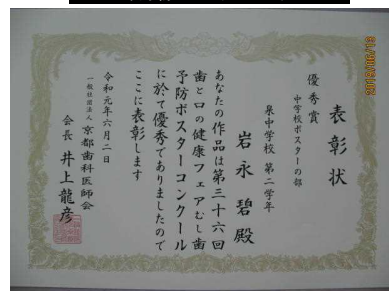 表彰状
優秀賞
中学校ポスターの部
泉中学校 第二学年
岩永碧殿
あなたの作品は第三十六回
歯と口の健康フェアむし歯
予防ポスターコンクール
に於て優秀でありましたので
ここに表彰します
令和元年六月二日
一般社団法人 京都歯科医師会
会長 井上龍彦